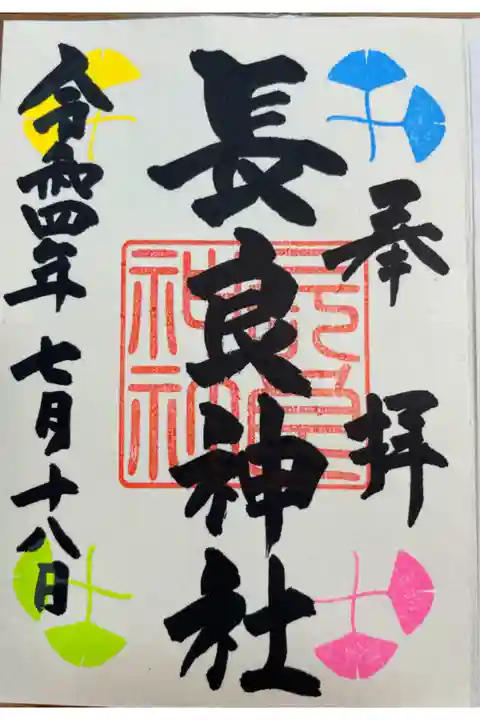 奉拝
長良神社
長良神社
令和四年七月十八日